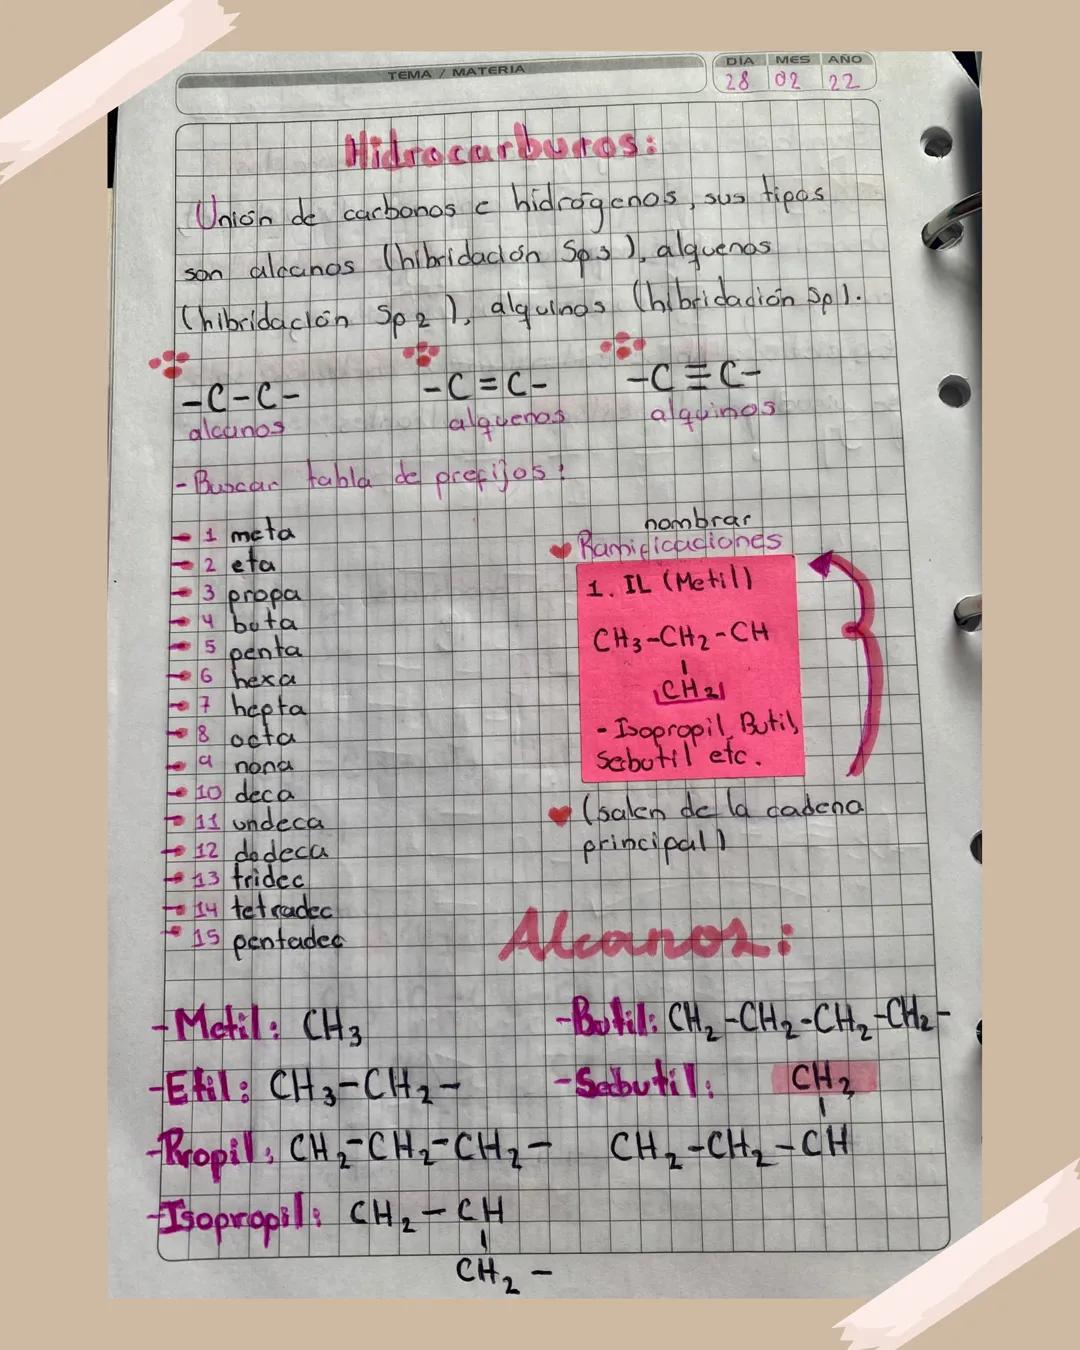 TEMA / MATERIA
DIA MES AÑO
28 02 22
Hidrocarburos:
Unión de carbonos e hidrógenos, sus tipos
son alcanos (hibridación Sp3), alquenos
(hibridación Sp2), alquinos (hibridación Sp).
-C-C- -C=C- -C≡C-
alcanos alquenos alquinos
- Buscar tabla de prefijos:
1 meta
2 eta
3 propa
4 buta
5 penta
6 hexa
7 hepta
8 octa
9 nona
10 deca
11 undeca
12 dodeca
13 tridec
14 tetradec
15 pentadec
nombrar
Ramificaciones
1. IL (Metil)
CH3-CH2-CH
|
CH2
- Isopropil, Butil,
Secbutil etc.
(salen de la cadena
principal)
Alcanos:
-Metil: CH3
-Etil: CH3-CH2-
-Propil: CH2-CH2-CH2-
-Isopropil: CH2-CH
|
CH2-
-Butil: CH2-CH2-CH2-CH2-
-Secbutil: CH2
|
CH2-CH2-CH